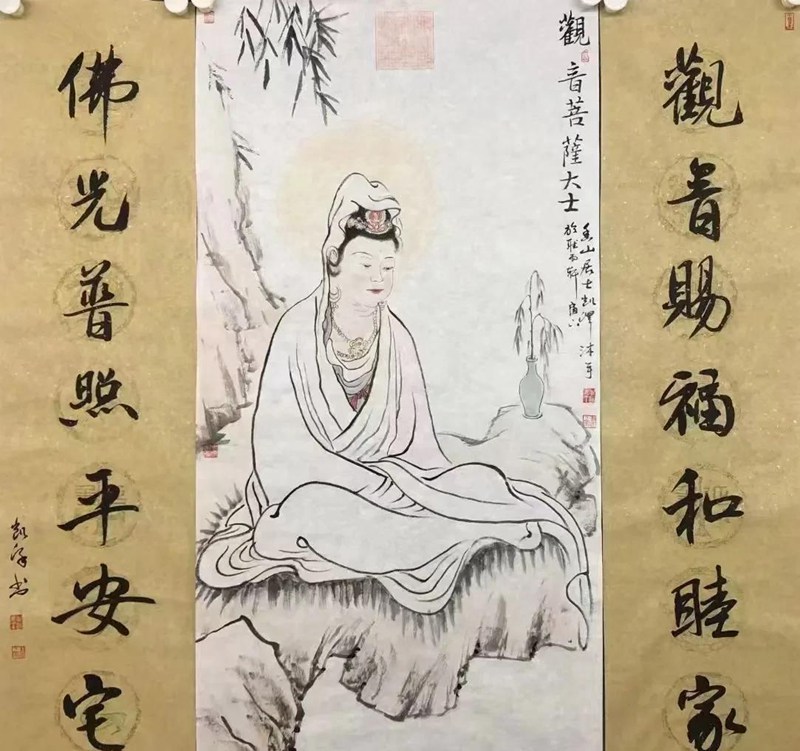 觀音賜福和睦家
觀音菩薩大士
香山居士凱潭沐手
佛光普照平安宅